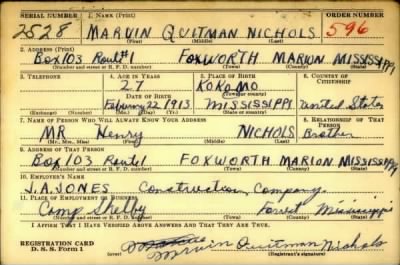 SERIAL NUMBER 1. NAME (Print) ORDER NUMBER
2528 MARVIN QUITMAN NICHOLS 596
(First) (Middle) (Last)
2. ADDRESS (Print)
Box 103 Route #1 FOXWORTH MARION MISSISSIPPI
(Number and street or R. F. D. number) (Town) (County) (State)
3. TELEPHONE 4. AGE IN YEARS 5. PLACE OF BIRTH 6. COUNTRY OF CITIZENSHIP
27 KOKOMO
DATE OF BIRTH (Town or county)
February 22 1913 MISSISSIPPI United States
(Exchange) (Number) (Mo.) (Day) (Yr.) (State or country)
7. NAME OF PERSON WHO WILL ALWAYS KNOW YOUR ADDRESS 8. RELATIONSHIP OF THAT PERSON
MR Henry NICHOLS Brother
(Mr., Mrs., Miss) (First) (Middle) (Last)
9. ADDRESS OF THAT PERSON
Box 103 Route 1 FOXWORTH MARION MISSISSIPPI
(Number and street or R. F. D. number) (Town) (County) (State)
10. EMPLOYER'S NAME
J.A. JONES Construction Company
11. PLACE OF EMPLOYMENT OR BUSINESS
Camp Shelby Forrest Mississippi
(Number and street or R. F. D. number) (Town) (County) (State)
I AFFIRM THAT I HAVE VERIFIED ABOVE ANSWERS AND THAT THEY ARE TRUE.
REGISTRATION CARD
D. S. S. Form 1 Marvin Quitman Nichols